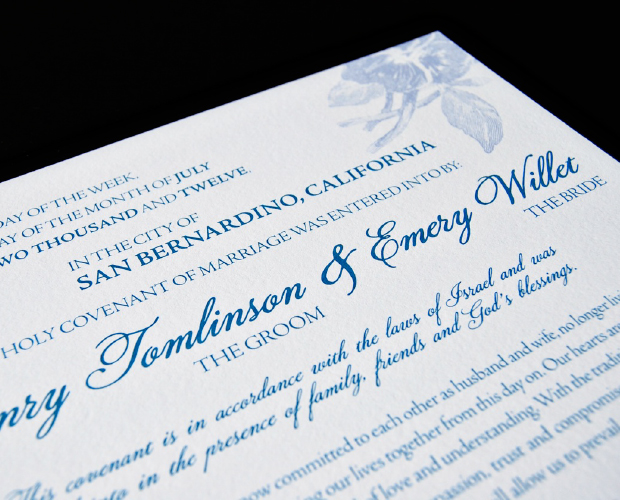 DAY OF THE WEEK,
DAY OF THE MONTH OF JULY
TWO THOUSAND AND TWELVE,
IN THE CITY OF
SAN BERNARDINO, CALIFORNIA
HOLY COVENANT OF MARRIAGE WAS ENTERED INTO BY:
nry Tomlinson & Emery Willet
THE GROOM THE BRIDE
This covenant is in accordance with the laws of Israel and was
into in the presence of family, friends and God's blessings.
now committed to each other as husband and wife, no longer
our lives together from this day on. Our hearts are
of love and understanding. With the
passion, trust and
allow us to prevail